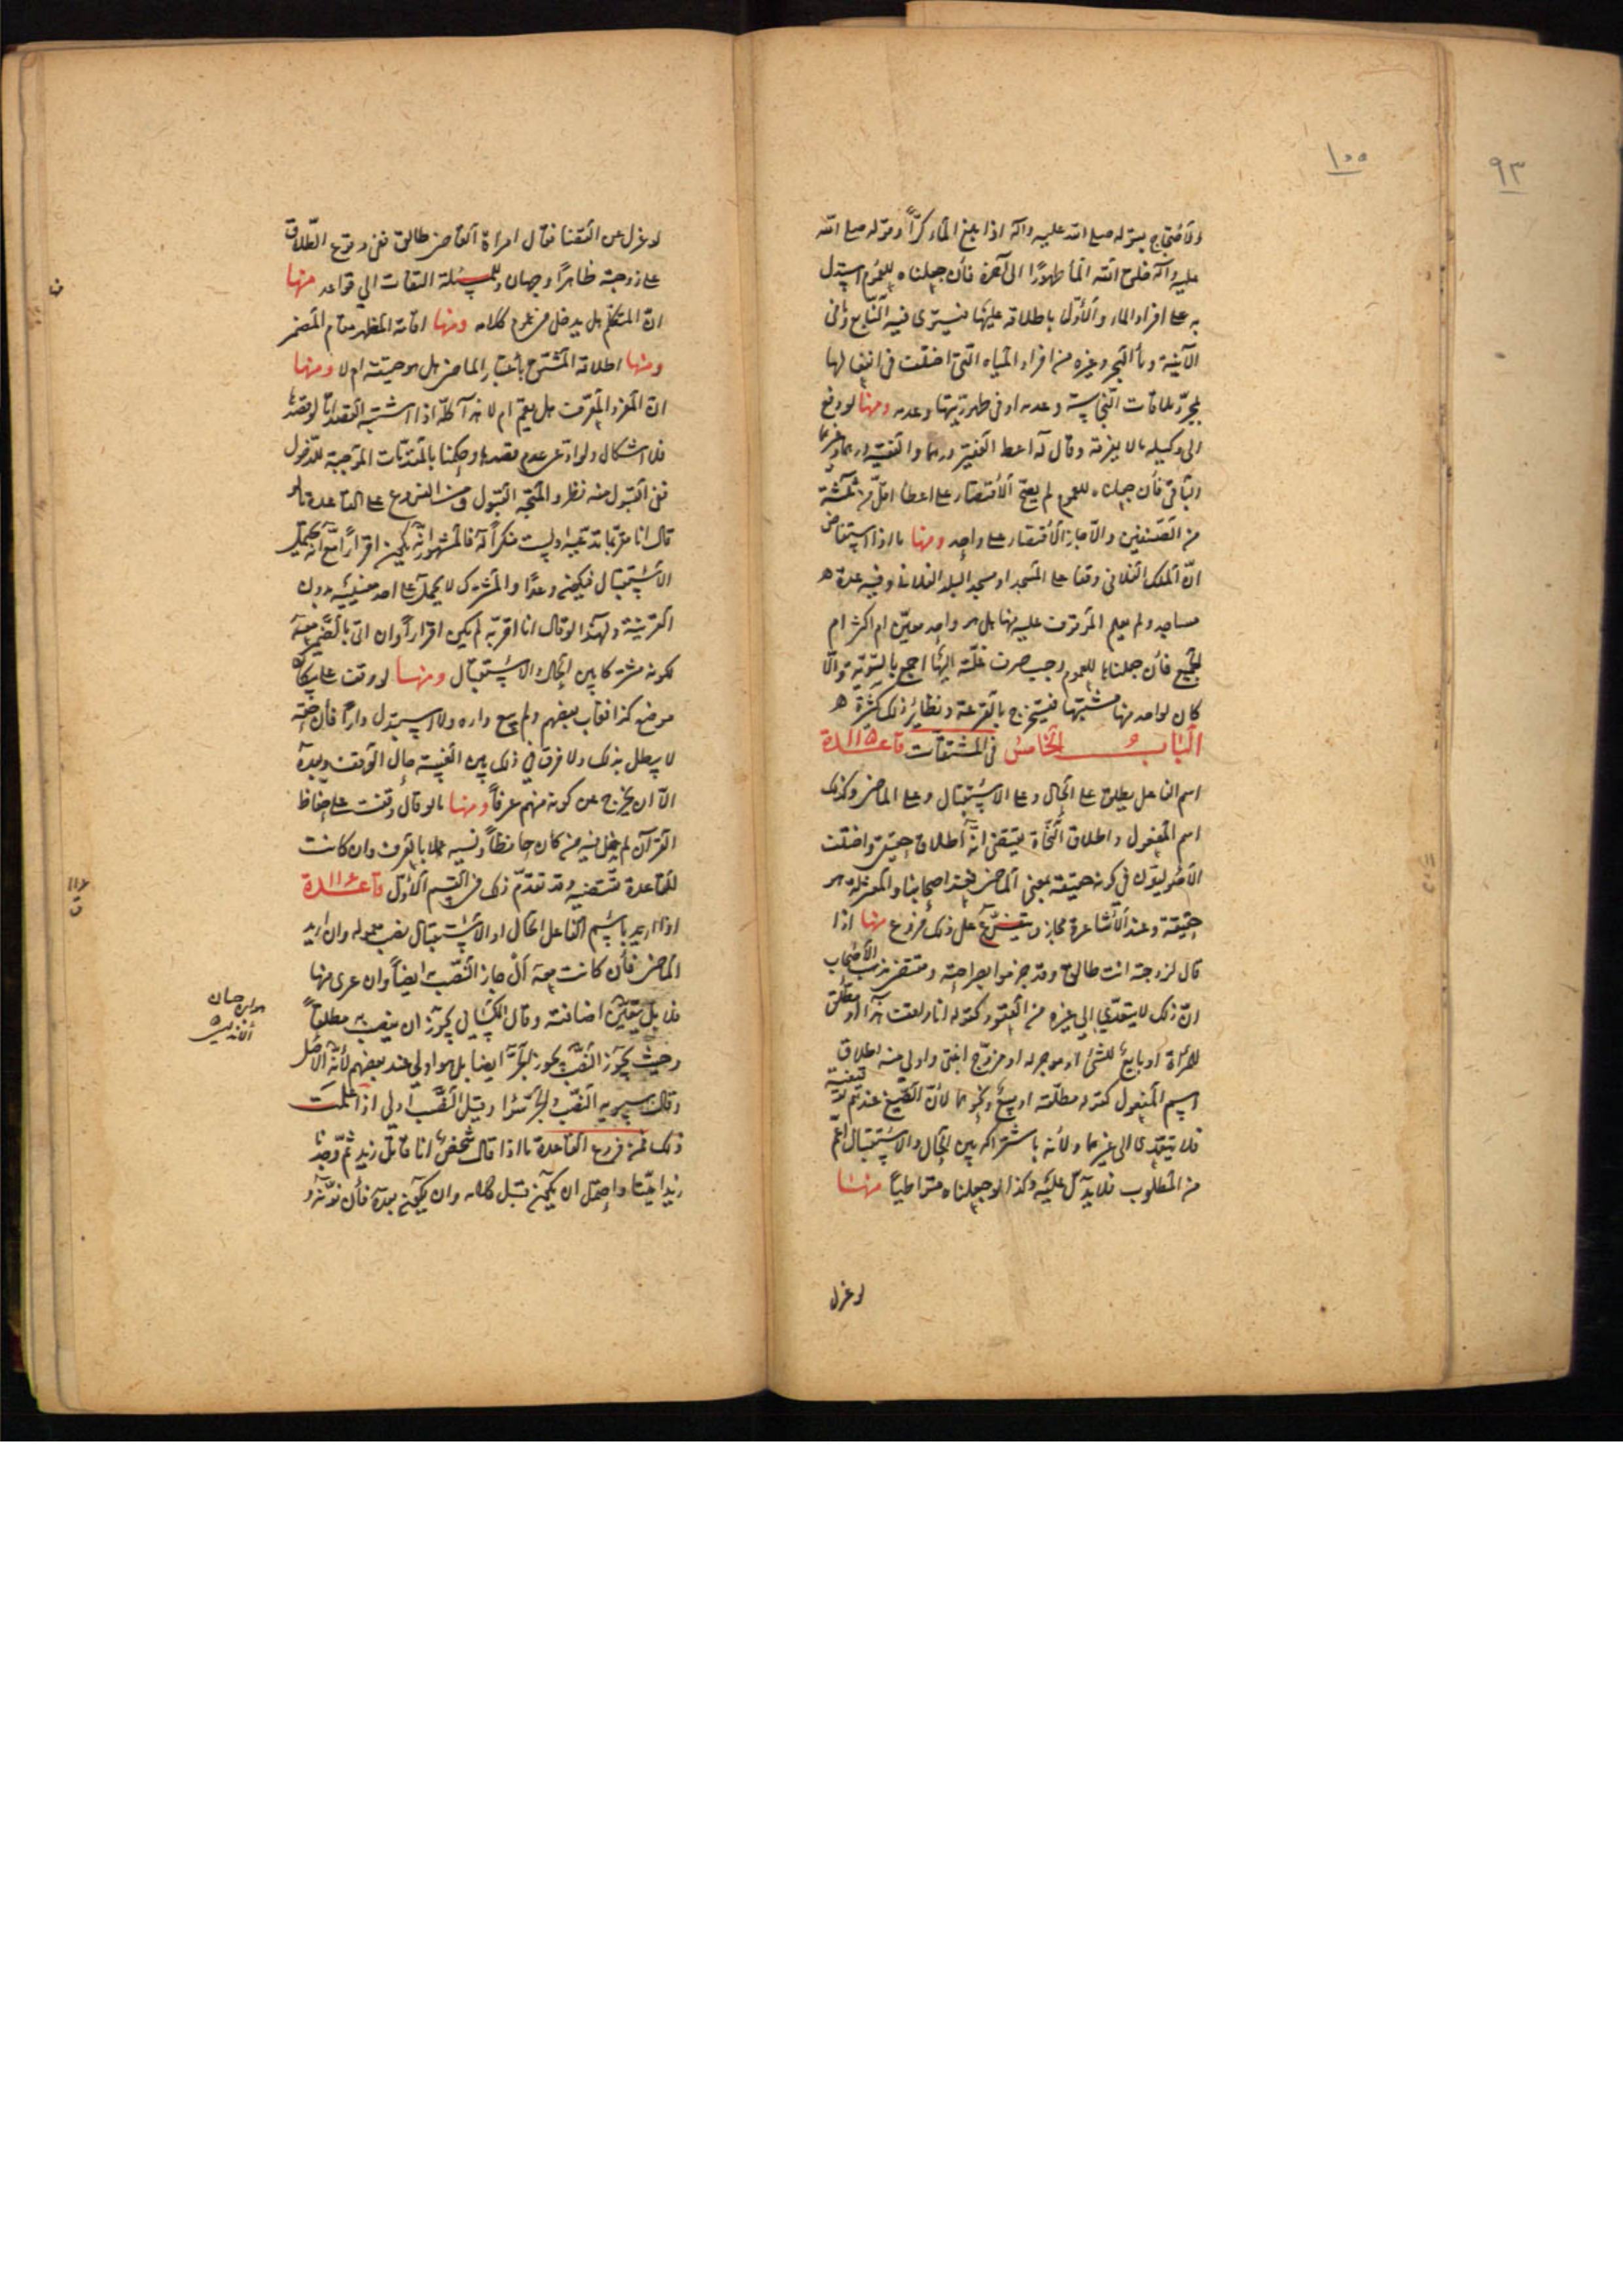 ١٠٠
٩٣
والاحتجاج بقوله صلى الله عليه وآله اذا بلغ الماء كرّاً وقوله صلى الله
عليه وآله خلق الله الماء طهورًا الى آخره فأن جعلناه للعموم استدل
به على افراد الماء والأوّل باطلاقه عليها فيستوى فيه النابع وفى
الآنية وماء البحر وغيره من افراد المياه التى اختلف فى انفعالها
بمجرّد ملاقات النجاسة وعدمه او فى طهوريتها وعدمه ومنها لو دفع
الى وكيله مالا يغرفه وقال له اعط الفقير درهما والفقيه درهما
والباقى فأن جعلناه للعموم لم يصح الأقتصار على اعطاء اقل من ثلثة
من الصنفين والّا جاز الأقتصار على واحد ومنها ما اذا استفاض
انّ الملك الفلانى وقفا على المسجد او مسجد البلد الفلانى وفيه عدة
مساجد ولم يعلم الموقوف عليه منها هل هو واحد معيّن ام اكثر ام
الجميع فأن جعلناه للعموم وجب صرف غلّته اليها اجمع بالسّوية والّا
كان لواحد منها مشتبها فيستخرج بالقرعة ونظائر ذلك كثرة
الباب الخامس فى المشتقات قاعدة
اسم الفاعل يطلق على الحال وعلى الاستقبال وعلى الماضى وكذلك
اسم المفعول واطلاق النحاة يقتضى انّه اطلاق حقيقى واختلف
الأصوليّون فى كونه حقيقة بمعنى الماضى فعند اصحابنا والمعتزلة هو
حقيقة وعند الأشاعرة مجاز ويتفرّع على ذلك فروع منها اذا
قال لزوجته انت طالق وقد جزموا بصراحته ومقتضى مذهب الأصحاب
انّ ذلك لا يتعدّى الى غيره من العقود كقوله انا
للمرأة او بايع للشئ او موجر له او مزوّج ابنتى واولى منه اطلاق
اسم المفعول كقوله مطلّقة او مبيع ونحوهما لأنّ الصّيغ عندهم
فلا يتعدّى الى غيرها ولأنه باشتراكه بين الحال والاستقبال اعمّ
من المطلوب فلا يدلّ عليه وكذا لو جعلناه متواطيا منها
لو عزل
لو عزل عن القضا فقال امراة القاضى طالق ففى وقوع الطّلاق
على زوجته ظاهرًا وجهان وللمسئلة التفات الى قواعد منها
انّ المتكلّم هل يدخل فى عموم كلامه ومنها اقامة المظهر مقام المضمر
ومنها اطلاقه المشتق بأعتبار الماضى هل هو حقيقة ام لا ومنها
انّ المفرد المعرّف هل يعمّ ام لا هذا كلّه اذا اشتبه القصد امّا لو قصدها
فلا اشكال ولو ادّعى عدم قصدها وحكمنا بالمقدّمات الموجبة للدّخول
ففى القبول منه نظر والمتّجه القبول ومن الفروع على القاعدة ما لو
قال انا مقرّ بما تدّعيه او لست منكراً له فالمشهور انّه يكون اقرارًا مع انّه يحتمل
الأستقبال فيكون وعدًا والمشترك لا يحمل على احد معنييه بدون
القرينة ولهذا لو قال انا اقرّ به لم يكن اقراراً وان اتى بالضّمير معه
لكونه مشتركا بين الحال والاستقبال ومنها لو وقف على سكان
موضع كذا فغاب بعضهم ولم يبع داره ولا استبدل داراً فأن حقّه
لا يبطل بذلك ولا فرق فى ذلك بين الغيبة حال الوقف وبعده
الّا ان يخرج عن كونه منهم عرفاً ومنها ما لو قال وقفت على حفاظ
القرآن لم يدخل فيه من كان حافظاً ونسيه عملا بالعرف وان كانت
القاعدة تقتضيه وقد تقدّم ذلك فى القسم الأوّل قاعدة
اذا اريد باسم الفاعل الحال او الأستقبال نصب معموله وان اريد
الماضى فأن كانت معه أل جاز النّصب به ايضاً وان عرى منها
فلا بل يتعيّن اضافته وقال الكسائى يجوز ان ينصب به مطلقاً
وحيث يجوز النّصب يجوز الجرّ ايضا بل هو اولى عند بعضهم لأنّه الأصل
وقال سيبويه النّصب والجرّ سوا وقيل النّصب اولى اذا علمت
ذلك فمن فروع القاعدة ما اذا قال شخص انا قاتل زيد ثمّ وجدنا
زيدا ميّتا واحتمل ان يكون قبل كلامه وان يكون بعده فأن نوّنه